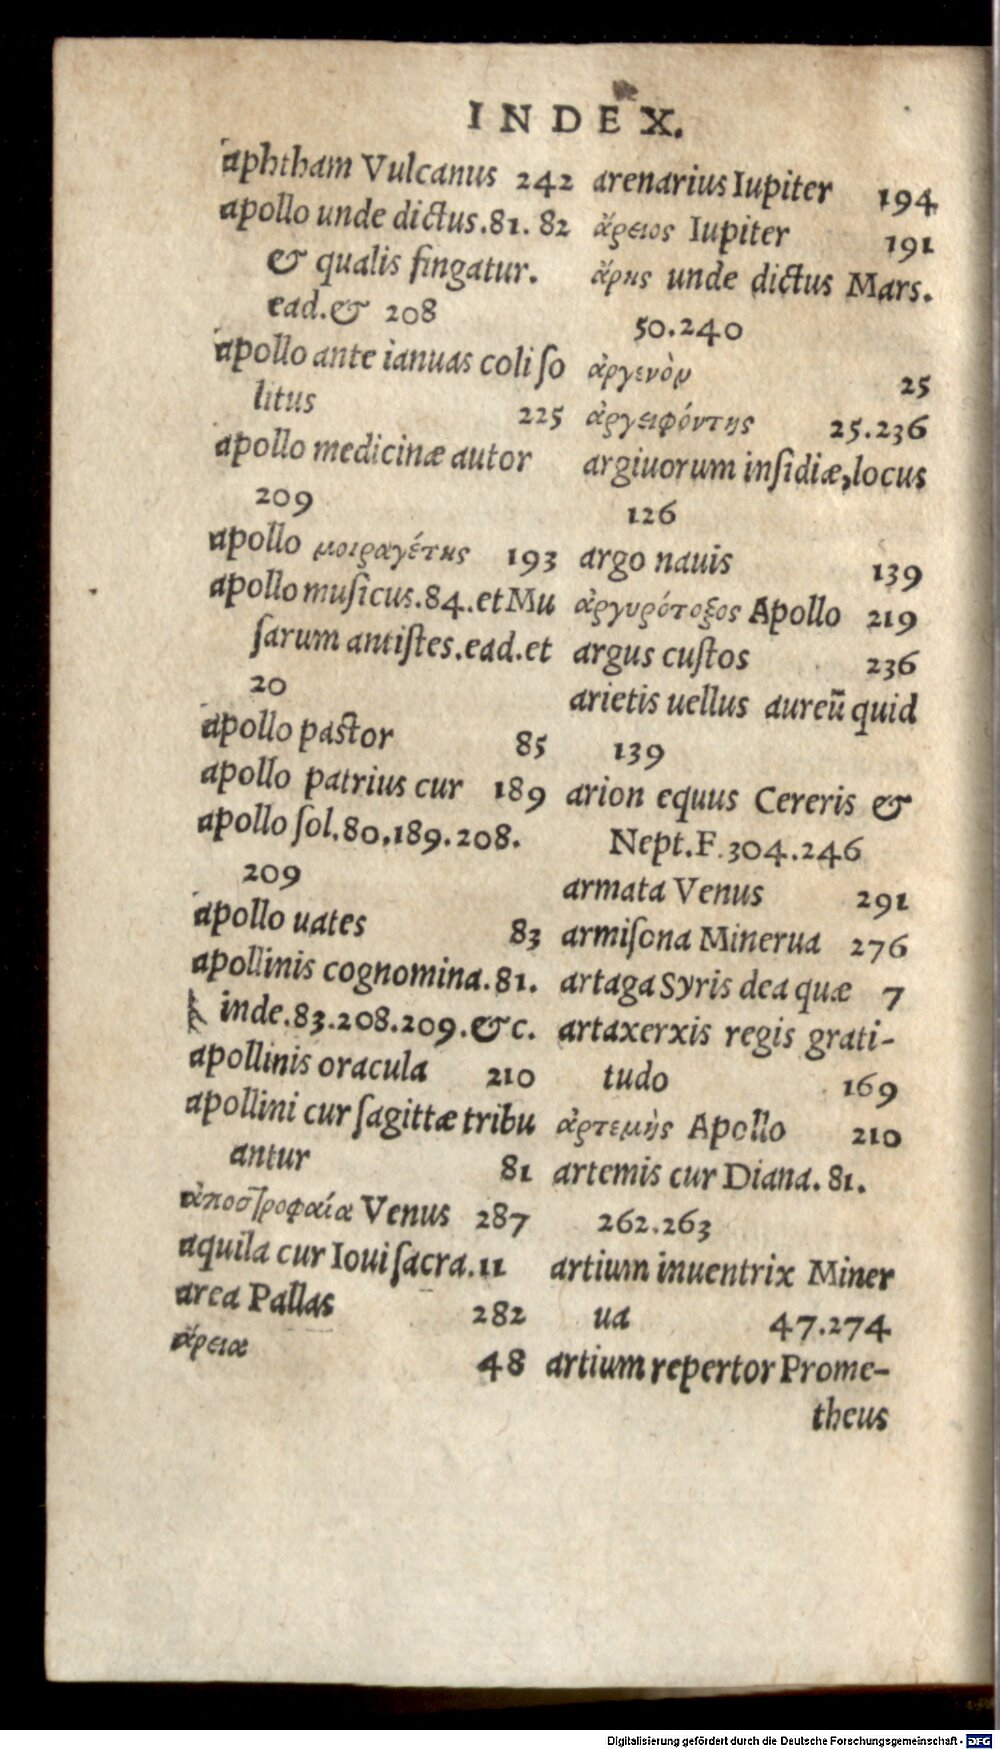 INDEX.
aphtham Vulcanus 242
apollo unde dictus.81. 82
& qualis fingatur.
ead.& 208
apollo ante ianuas coli ſo
litus 225
apollo medicinæ autor
209
apollo μοιραγέτης 193
apollo muſicus.84.et Mu
ſarum antiſtes.ead.et
20
apollo pastor 85
apollo patrius cur 189
apollo ſol.80.189.208.
209
apollo uates 83
apollinis cognomina.81.
inde.83.208.209.&c.
apollinis oracula 210
apollini cur ſagittæ tribu
antur 81
ἀποστροφαία Venus 287
aquila cur Ioui ſacra.11
area Pallas 282
ἄρεια 48
arenarius Iupiter 194
ἄρειος Iupiter 191
ἄρης unde dictus Mars.
50.240
ἀργενὸν 25
ἀργειφόντης 25.236
argiuorum inſidiæ,locus
126
argo nauis 139
ἀργυρότοξος Apollo 219
argus cuſtos 236
arietis uellus aureū quid
139
arion equus Cereris &
Nept.F.304.246
armata Venus 291
armiſona Minerua 276
artaga Syris dea quæ 7
artaxerxis regis grati-
tudo 169
ἀρτεμὴς Apollo 210
artemis cur Diana. 81.
262.263
artium inuentrix Miner
ua 47.274
artium repertor Prome-
theus
Digitalisierung gefördert durch die Deutsche Forschungsgemeinschaft - DFG